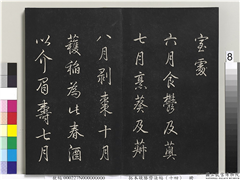 室處
六月食鬱及薁
七月烹葵及菽
八月剝棗十月
穫稻為此春酒
以介眉壽七月
8